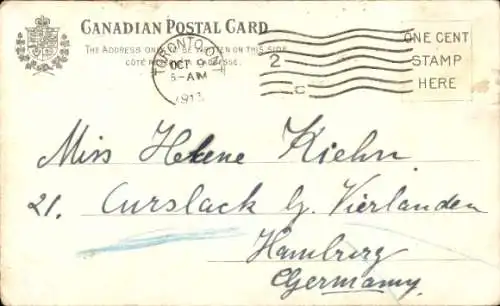 CANADIAN POSTAL CARD
THE ADDRESS ONLY TO BE WRITTEN ON THIS SIDE
CÔTÉ RÉSERVÉ À L'ADRESSE.
TORONTO, ONT
OCT 9
5-AM
1913
2
C
ONE CENT
STAMP
HERE
Miss Helene Kiehn
21. Curslack b/. Vierlanden
Hamburg
Germany.